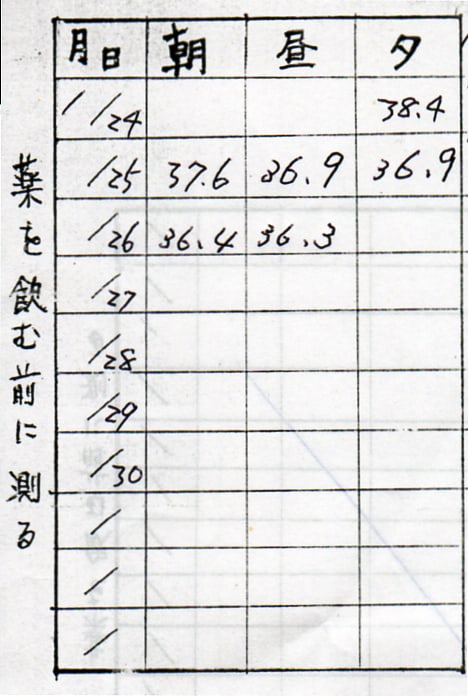 月日 朝 昼 夕
1/24 38.4
/25 37.6 36.9 36.9
/26 36.4 36.3
/27
/28
/29
/30
/
/
/
薬を飲む前に測る